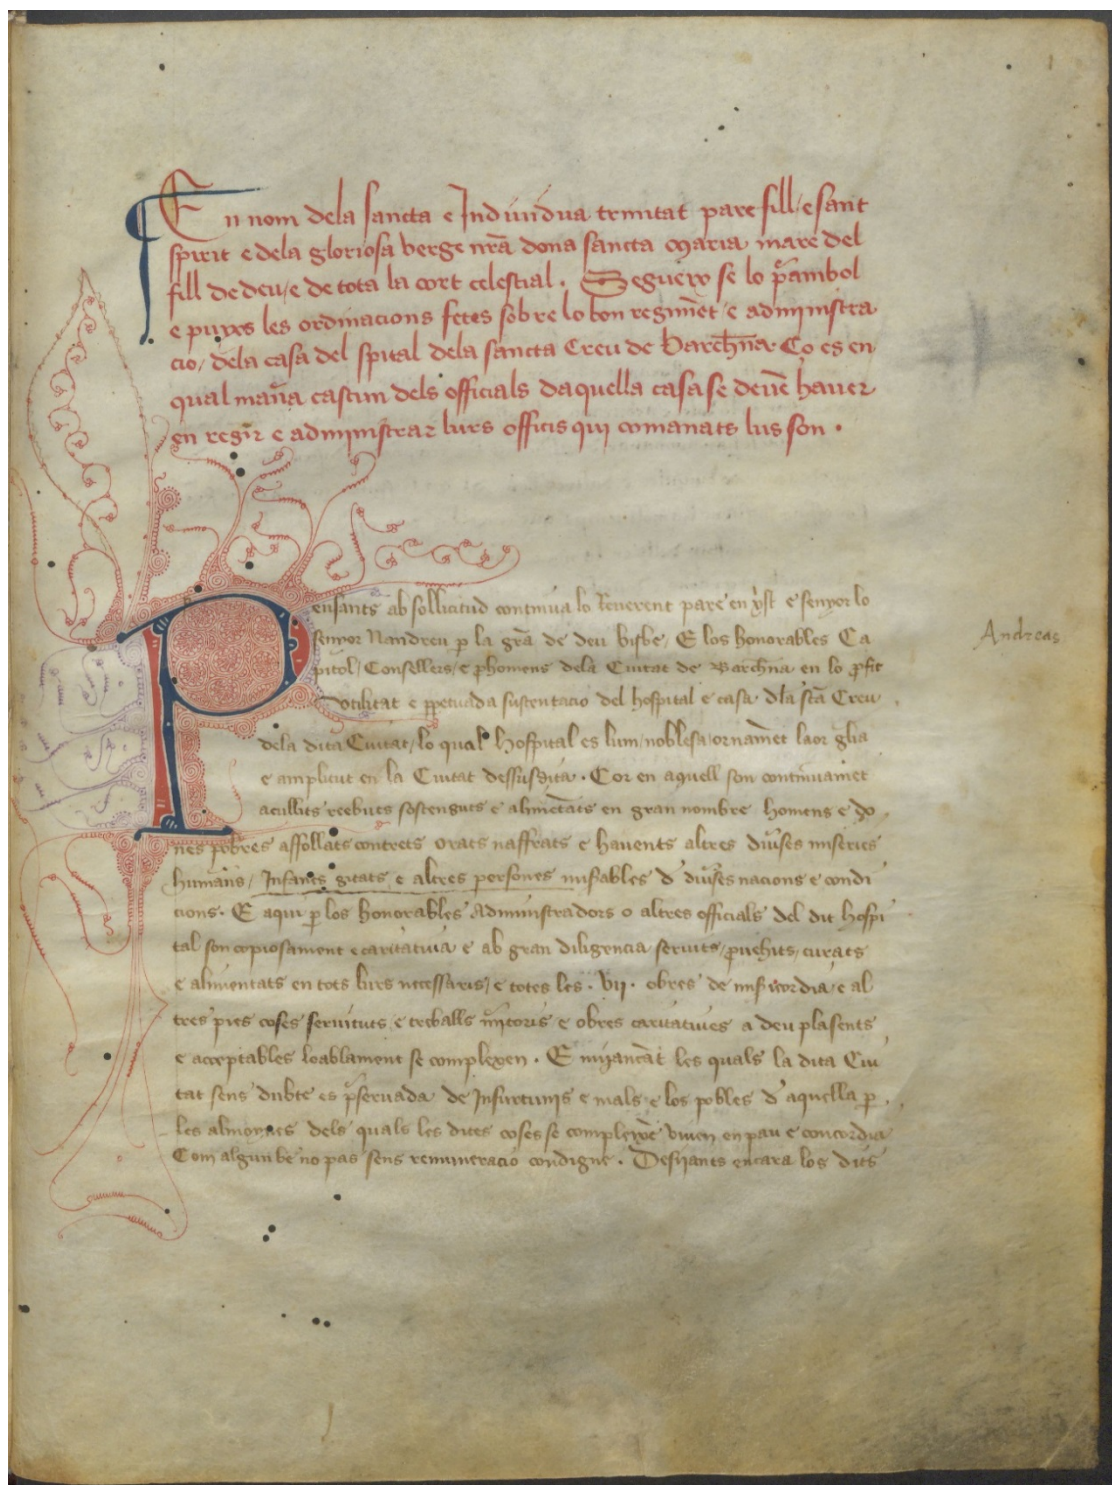 En nom dela sancta e Indiuidua trinitat pare fill / e sant
spirit e dela gloriosa verge nr̄a dona sancta Maria mare del
fill de deu / e de tota la cort celestial . Segueix se lo p̄ambol
e puixs les ordinacions fetes sobre lo bon regimēt e administra
cio / dela casa del spital dela sancta Creu de Barch̄na Ço es en
qual man̄a cascun dels officials daquella casa se deuē hauer
en regir e administrar lurs officis qui comanats lus son .
Pensants ab sollicitud continua lo Reuerent pare en x̄pst e senyor lo
senyor Nandreu p̱ la gr̄a de deu bisbe / E los honorables Ca
Andreas
pitol / Consellers / e p̱homens dela Ciutat de Barch̄na en lo p̱fit
vtilitat e p̱petuada sustentacio del hospital e casa dla st̄a Creu
dela dita Ciutat / lo qual hospital es lum / noblesa / ornamēt laor gl̄ia
e amplitut en la Ciutat dessusdita . Cor en aquell son continuamēt
acullits rebuts sostenguts e alimētats en gran nombre homens e do
nes pobres affollats contrets orats naffrats e hauents altres diūses miseries
humans / Infants gitats e altres persones mis̄ables d diūses nacions e condi
cions . E aqui p̱ los honorables Administradors o altres officials del dit hospi
tal son copiosament e caritatiua e ab gran diligencia seruits / p̱uehits / curats
e alimentats en tots lurs necessaris / e totes les . vij . obres de mis̄icordia / e al
tres pies coses seruituts e treballs m̄itoris e obres caritatiues a deu plasents
e acceptables loablament se complexen . E mijancāt les quals la dita Ciu
tat sens dubte es p̄seruada de Infurtunis e mals e los pobles d aquella p̱
les almoynes dels quals les dites coses se complexē viuen en pau e concordia
Com algun be no pas sens remuneracio condigne . Desijants encara los dits